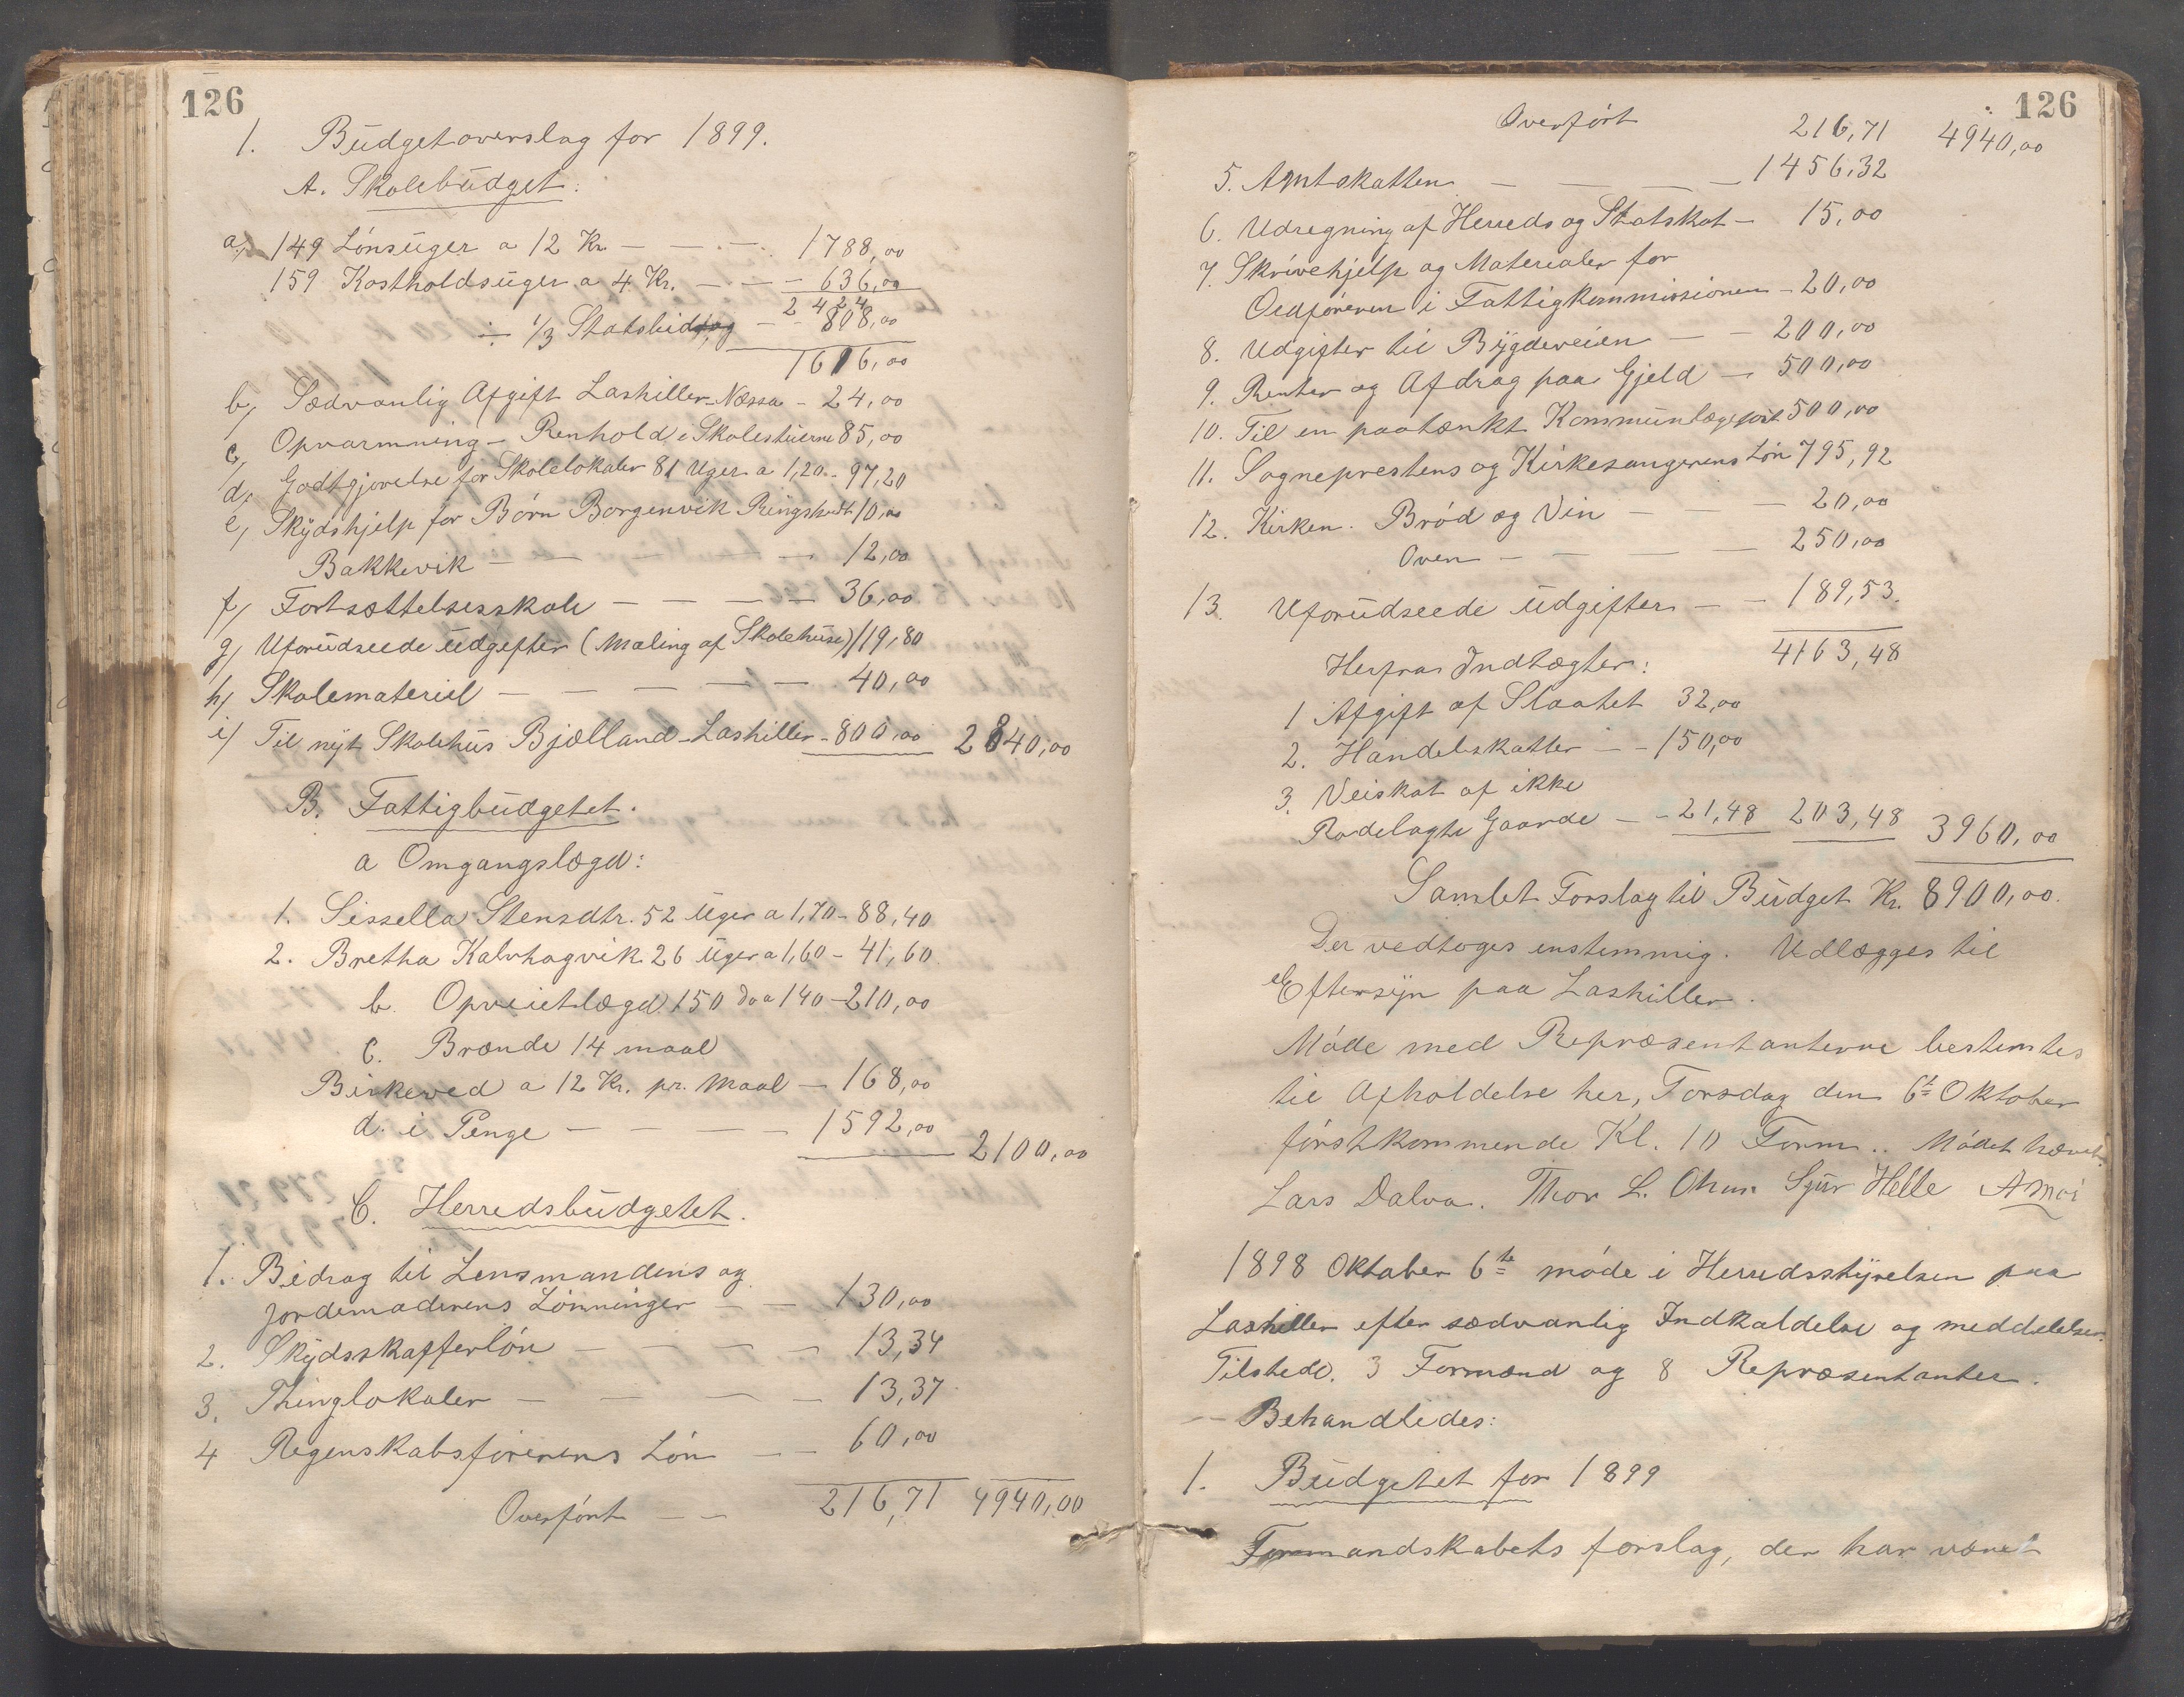 126
1. Budgetoverslag for 1899.
A. Skolebudget:
a, 149 Lønsuger a 12 Kr. — — — 1788,00
159 Kostholdsuger a 4 Kr. — — — 636,00
2424
÷ 1/3 Statsbidrag — — 808,00
1616,00
b, Sædvanlig Afgift Lashiller-Næssa - 24,00
c, Opvarmning - Renhold i Skolestuerne 85,00
d, Godtgjørelse for Skolelokaler 81 Uger a 1,20 - 97,20
e, Skydshjelp for Børn Borgenvik 10,00
Bakkevik — — — 12,00
f, Fortsættelsesskole — — — — 36,00
g, Uforudseede Udgifter (Maling af Skolehuse) 119,80
h, Skolemateriel — — — — — 40,00
i, Til nyt Skolehus Bjælland-Lashiller - 800,00 2840,00
B. Fattigbudgetet.
a Omgangslægd:
1. Sissella Stensdtr. 52 Uger a 1,70 - 88,40
2. Bretha Kalvhagvik 26 Uger a 1,60 - 41,60
b. 150 do a 140 - 210,00
c. Brænde 14 maal
Birkeved a 12 Kr. pr. Maal — 168,00
d. i Penge — — — — 1592,00 2100,00
C. Herredsbudgetet.
1. Bidrag til Lensmandens og
Jordemoderens Lønninger — — 130,00
2. Skydsskafferløn — — — — 13,34
3. Thinglokaler — — — — 13,37
4 Regenskabsførerens Løn — — 60,00
Overført — — 216,71 4940,00
126
Overført 216,71 4940,00
5. Amtskatten — — — — 1456,32
6. Udregning af Herreds og Statskat - 15,00
7. Skrivehjelp og Materialer for
Ordføreren i Fattigkommissionen - 20,00
8. Udgifter til Bygdeveien — — 200,00
9. Renter og Afdrag paa Gjeld — 500,00
10. Til en paatænkt Kommunlægepost 500,00
11. Sogneprestens og Kirkesangerens Løn 795,92
12. Kirken. Brød og Vin — — — 20,00
Oven — — — — 250,00
13 Uforudseede udgifter — — 189,53.
Herfra Indtægter: 4163,48
1 Afgift af Slaatet 32,00
2. Handelskatter — - 150,00
3. Veiskat af ikke
Rodelagte Gaarde — - 21,48 203,48 3960,00
Samlet Forslag til Budget Kr. 8900,00.
Der vedtoges enstemmig. Udlægges til
Eftersyn paa Lashiller.
Møde med Repræsentanterne bestemtes
til Afholdelse her, Torsdag den 6te Oktober
førstkommende Kl. 10 Form.. Mødet hævet.
Lars Dalva. Thor L. Sjur Helle
1898 Oktober 6te møde i Herredsstyrelsen paa
Lashiller efter sædvanlig Indkaldelse og meddelelser.
Tilstede. 3 Formænd og 8 Repræsentanter.
— Behandledes:
1. Budgetet for 1899
Formandskabets forslag, der har været